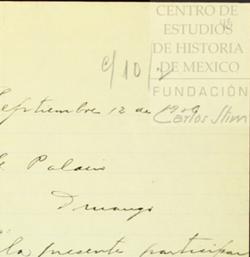 CENTRO DE
ESTUDIOS
DE HISTORIA
DE MEXICO
FUNDACIÓN
Carlos Slim
c/10/
Septiembre 12 de
Palacio
Durango
la presente participar